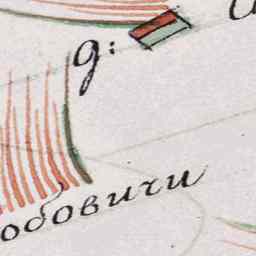 д:
обовичи